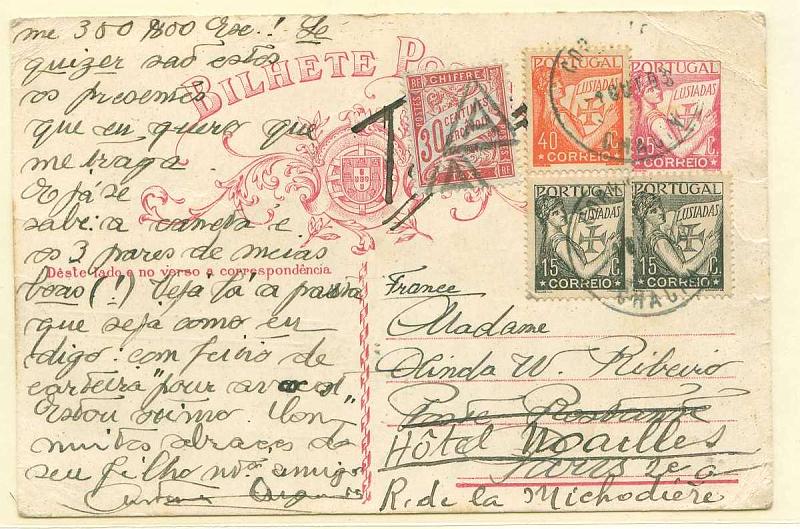 me 300 $00 Esc.! Se
quizer são estes
os presentes
que eu quero que
me traga.
E já se
sabe: a caneta é
os 3 pares de meias
boas (!) Veja lá a pasta
que seja como eu
digo: com feitio de
carteira "pour avocat"
Estou ótimo. Com
muitos abraços do
seu filho mᵗᵒ amigo
BILHETE POSTAL
Dêste lado e no verso a correspondência
T
CHIFFRE
POSTES
RF
30 CENTIMES
A PERCEVOIR
TAXE
RF
PORTUGAL
LUSIADAS
40 C.
CORREIO
PORTUGAL
LUSIADAS
25 C.
CORREIO
PORTUGAL
LUSIADAS
15 C.
CORREIO
PORTUGAL
LUSIADAS
15 C.
CORREIO
CHACIM
CHACIM
France
Madame
Olinda W. Ribeiro
Poste Restante
Hôtel Noailles
Paris 2e
R. de la Michodière